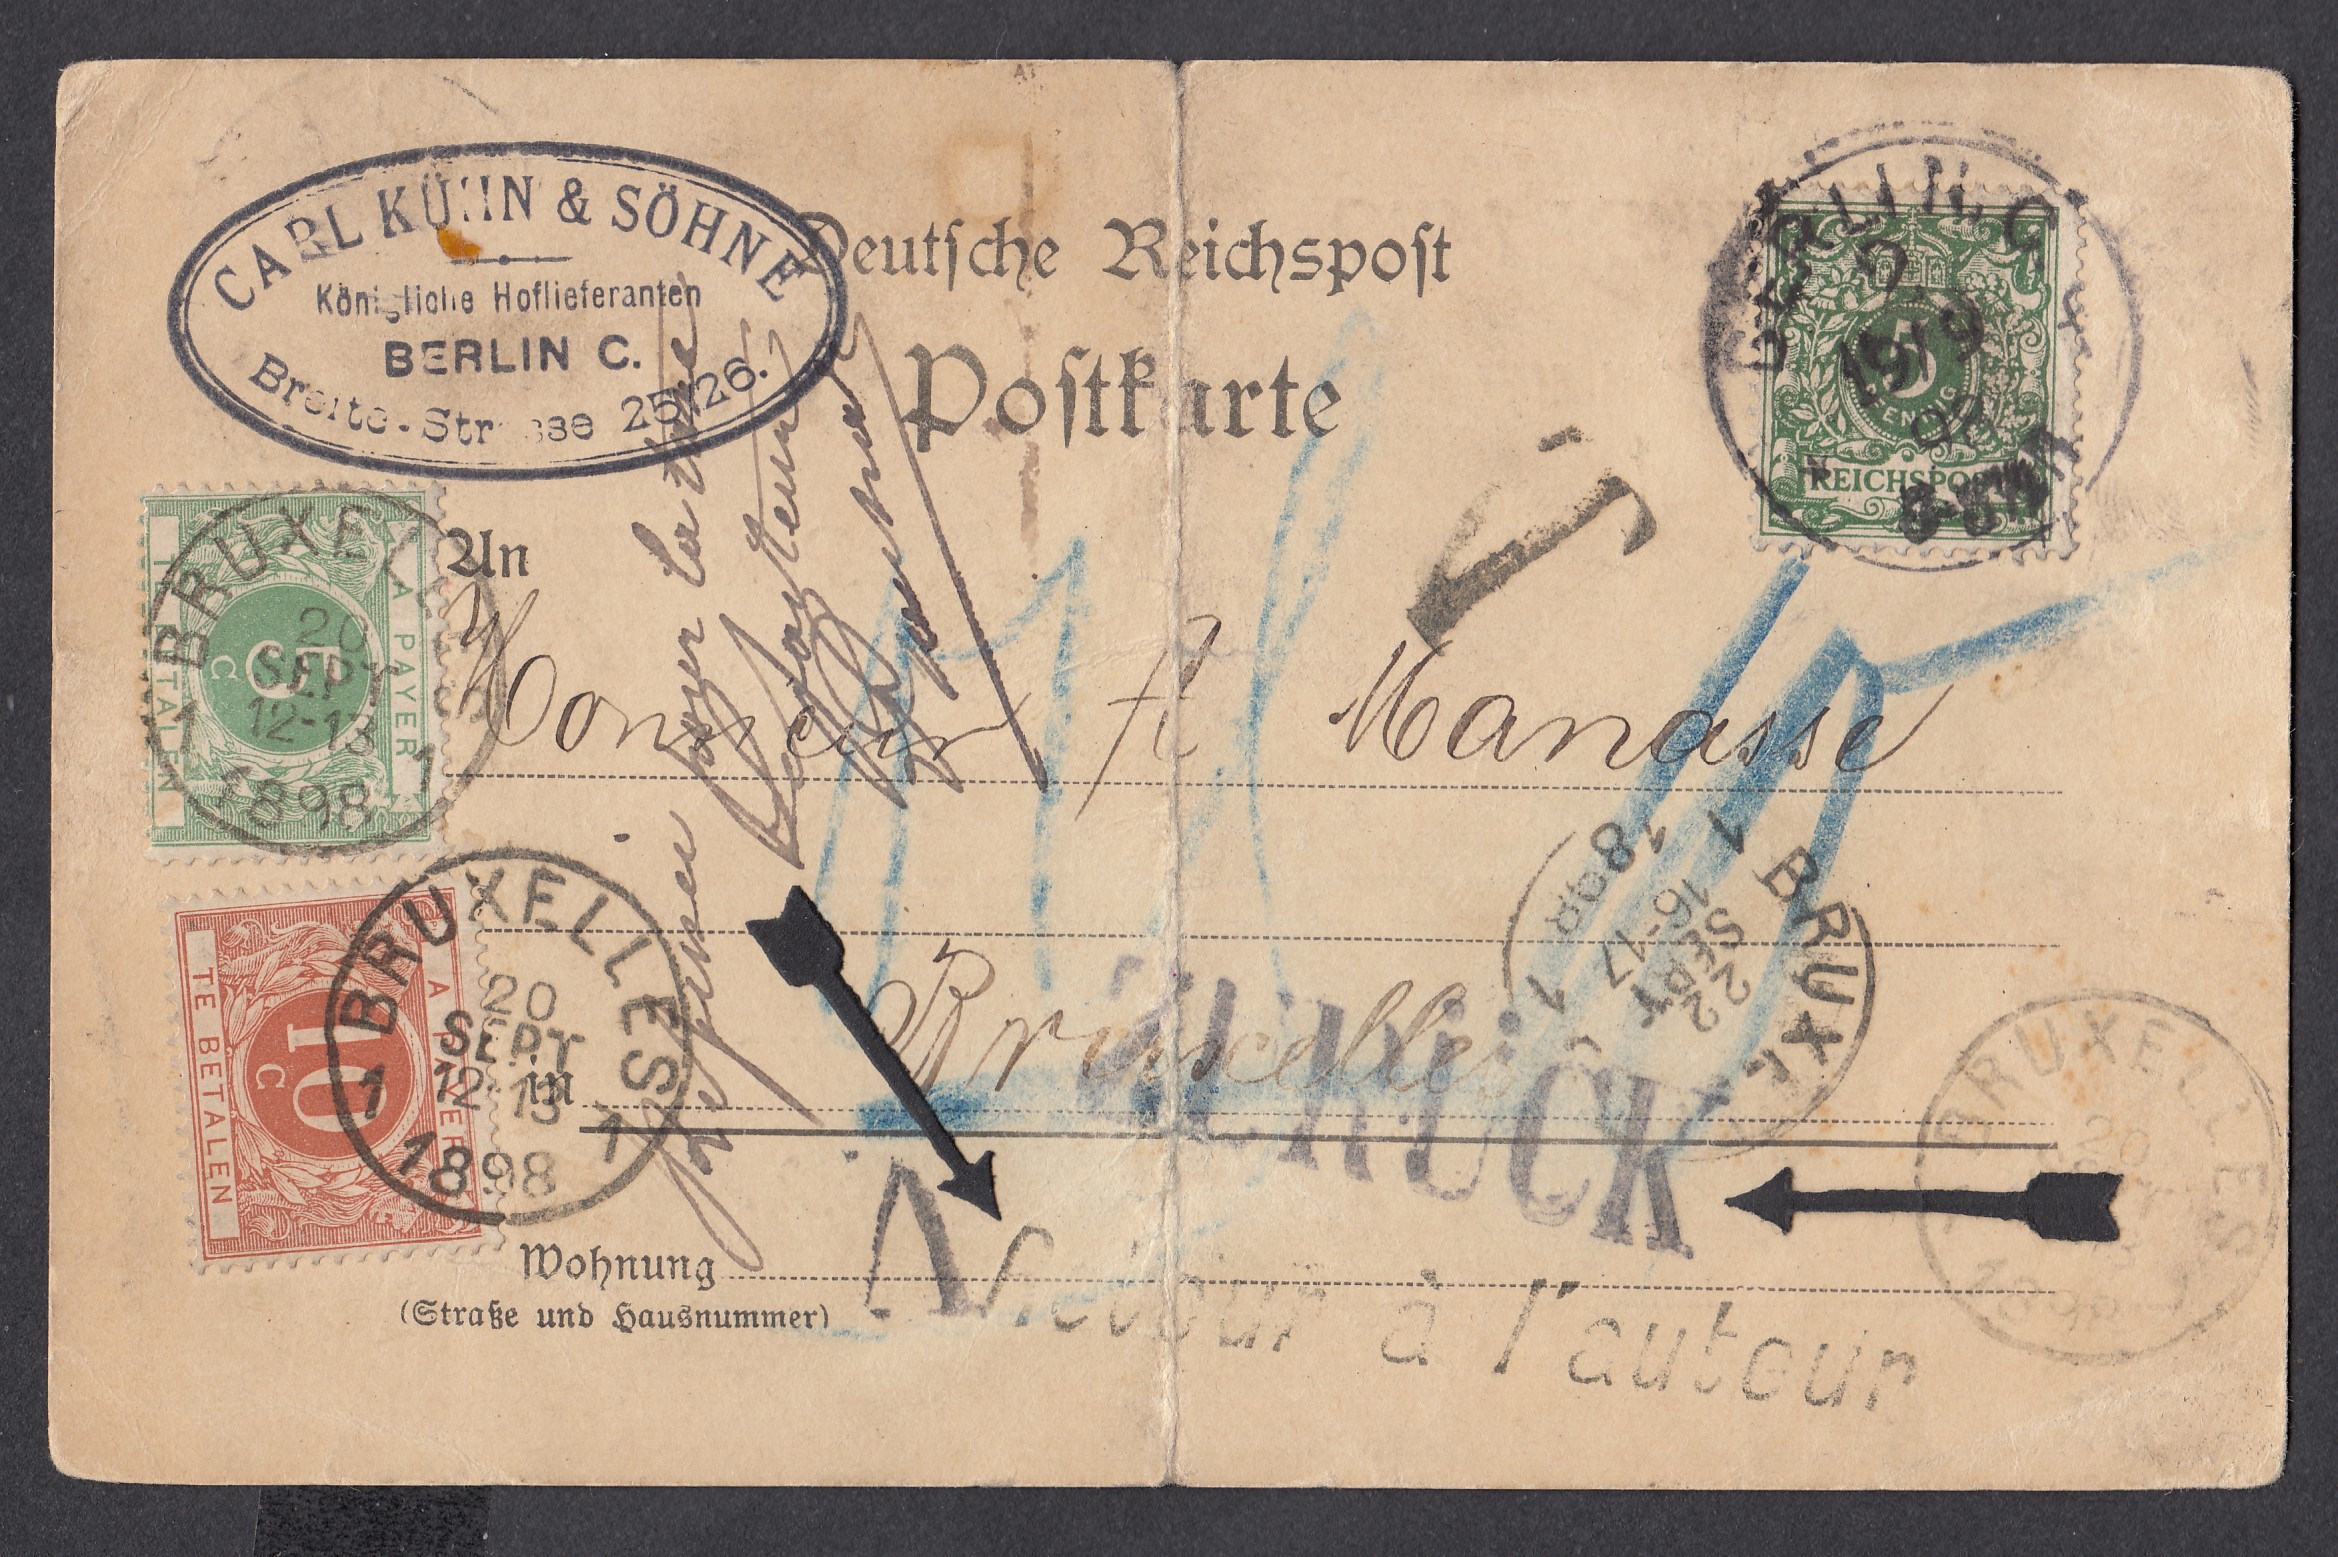 CARL KÜHN & SÖHNE
Königliche Hoflieferanten
BERLIN C.
Breite-Strasse 25/26.
Deutsche Reichspost
Postkarte
BERLIN C
2
19/9
98
8-9N
5
PFENNIG
REICHSPOST
T
An
Monsieur A Manasse
in Bruxelles
Wohnung
(Straße und Hausnummer)
A PAYER
5 C
TE BETALEN
BRUXELLES
20
SEPT
12-13
1 1898 1
A PAYER
10 C
TE BETALEN
BRUXELLES
20
SEPT
12-13
1 1898 1
refusé pour la taxe
BRUXELLES
22
SEPT
16-17
1 1898 1
Zurück
Retour à l'auteur
BRUXELLES
20